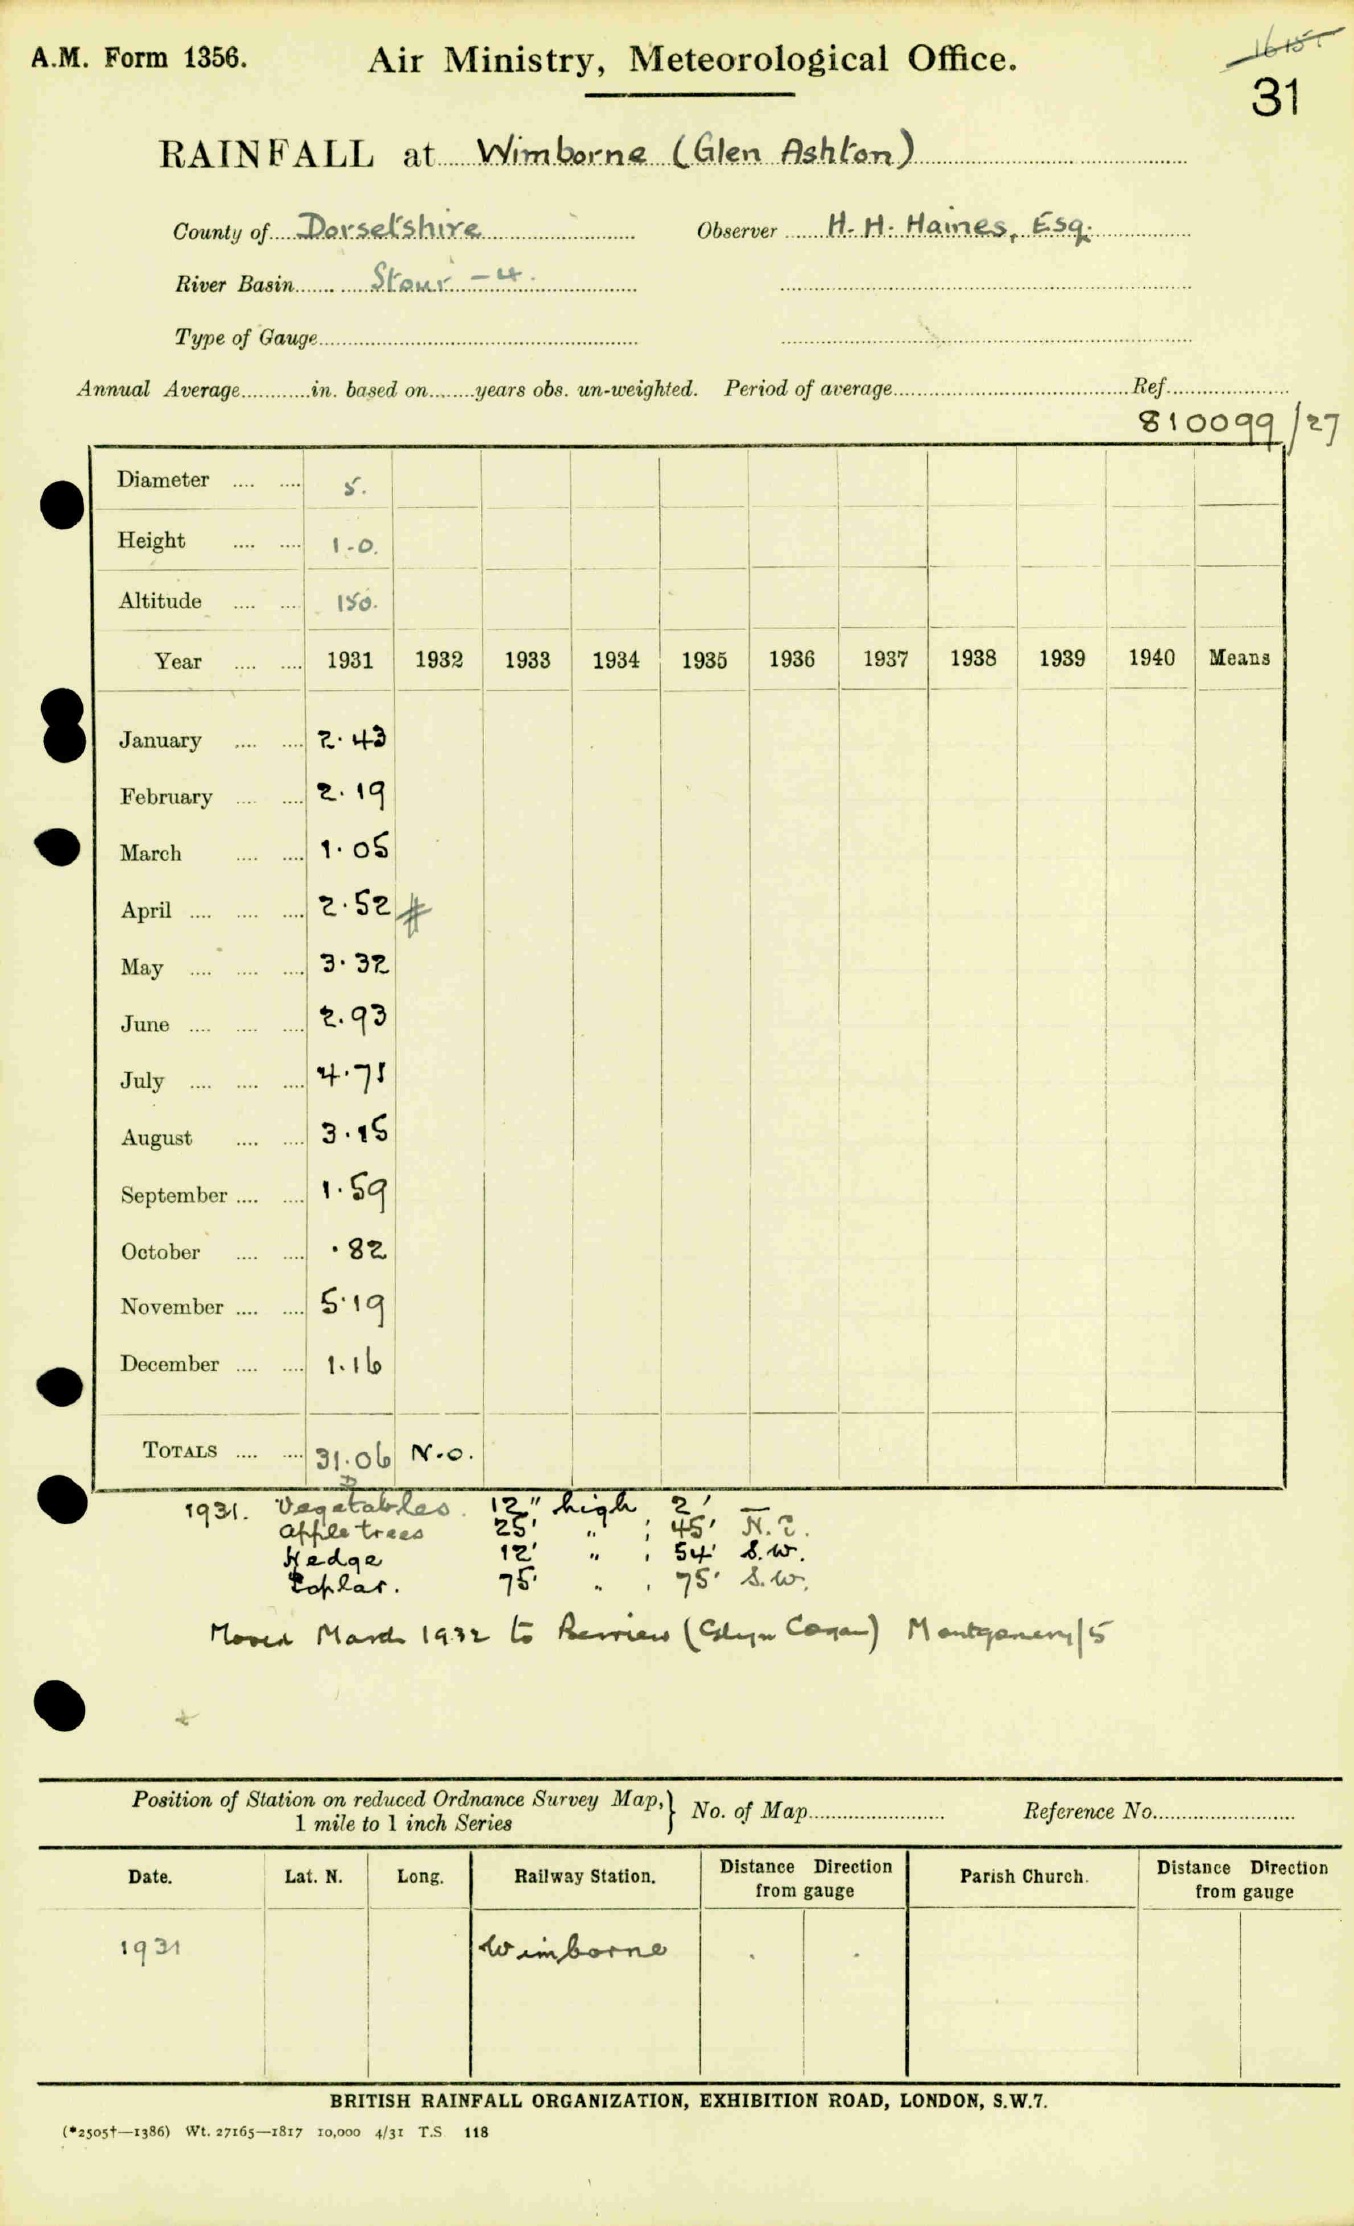 A.M. Form 1356.
Air Ministry, Meteorological Office.
31
RAINFALL at Wimborne (Glen Ashton)
County of Dorsetshire Observer H. H. Haines, Esq.
River Basin Stour - 4.
Type of Gauge
Annual Average in. based on years obs. un-weighted. Period of average Ref.
810099/27
Diameter 5.
Height 1-0.
Altitude 150.
Year 1931 1932 1933 1934 1935 1936 1937 1938 1939 1940 Means
January 2.43
February 2.19
March 1.05
April 2.52
May 3.32
June 2.93
July 4.71
August 3.15
September 1.59
October .82
November 5.19
December 1.16
TOTALS 31.06 N.O.
1931. Vegetables. 12" high 2'
Apple trees 25' " ; 45' N.E.
Hedge 12' " , 54' S.W.
Poplar. 75' " , 75' S.W.
Moved March 1932 to Berriew (Glyn Cogan) Montgomery/5
Position of Station on reduced Ordnance Survey Map,} No. of Map Reference No.
1 mile to 1 inch Series
Date. Lat. N. Long. Railway Station. Distance Direction from gauge Parish Church. Distance Direction from gauge
1931 Wimborne
BRITISH RAINFALL ORGANIZATION, EXHIBITION ROAD, LONDON, S.W.7.
(*2505†—1386) Wt. 27165—1817 10,000 4/31 T.S. 118